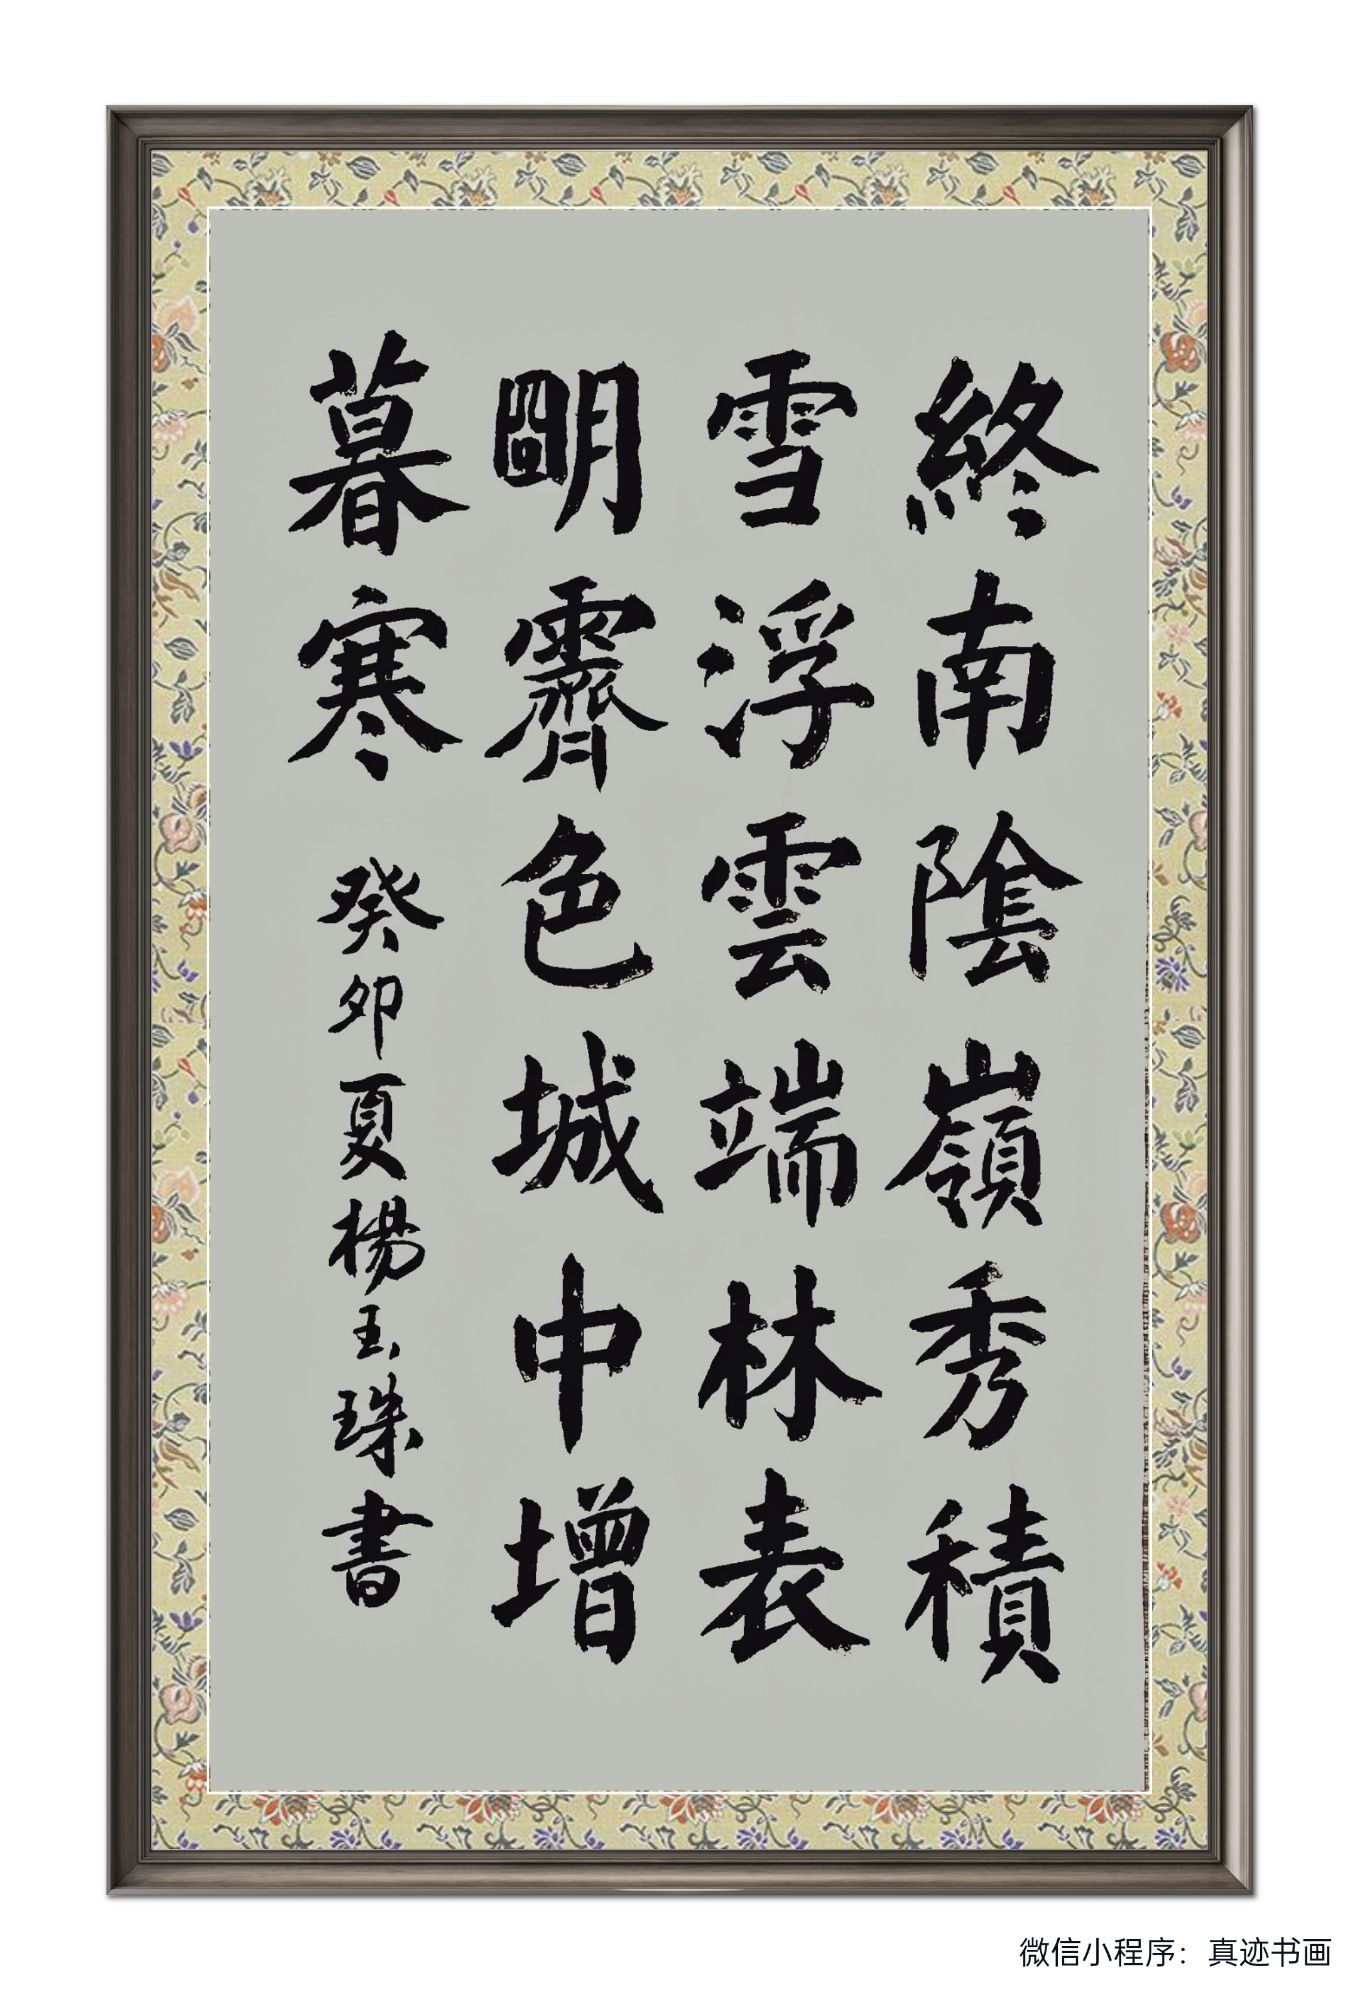 終南陰嶺秀積
雪浮雲端林表
明霽色城中增
暮寒
癸卯夏楊玉珠書
微信小程序：真迹书画